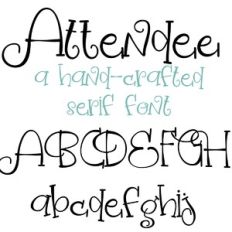 Attendee
a hand-crafted
serif font
ABCDEFGH
abcdefghij